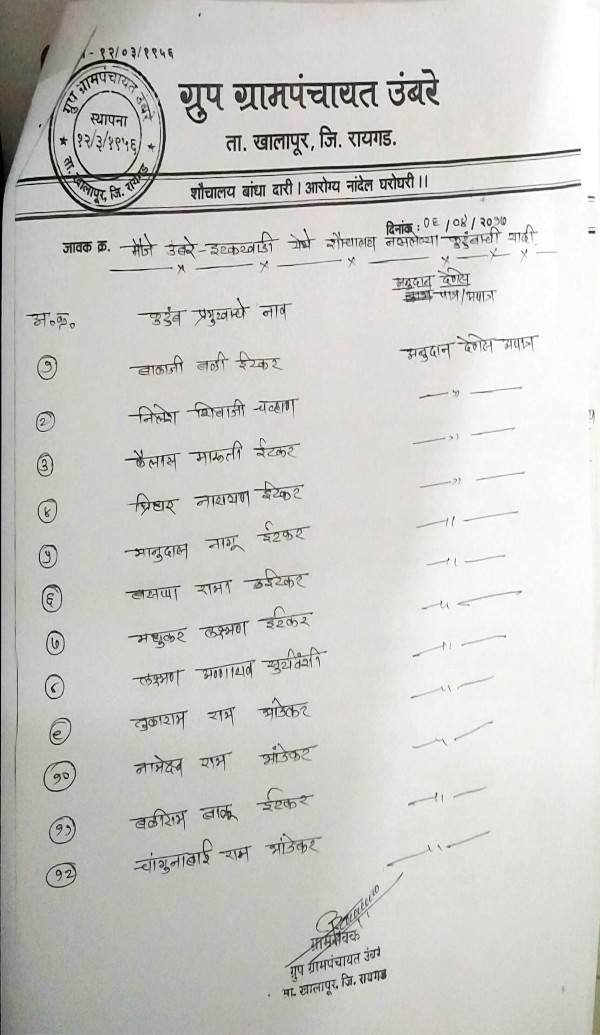 - १२/०३/१९५६
ग्रुप ग्रामपंचायत उंबरे
स्थापना
१२/३/१९५६
ता. खालापूर, जि. रायगड.
ग्रुप ग्रामपंचायत उंबरे
ता. खालापूर, जि. रायगड.
शौचालय बांधा दारी । आरोग्य नांदेल घरोघरी ।।
दिनांक : ०६/०४/२०१७
जावक क्र. मौजे उंबरे-इटकरवाडी येथे शौचालय नसलेल्या कुटुंबाची यादी
अनुदान देणेस
पात्र/अपात्र
अ.क्र. कुटुंब प्रमुखाचे नाव
१ बाळाजी बळी ईटकर अनुदान देणेस अपात्र
२ निलेश शिवाजी चव्हाण —"—
३ कैलास मारुती ईटकर —"—
४ श्रीधर नारायण ईटकर —"—
५ भानुदास नागू ईटकर —"—
६ बसप्पा रामा ईटकर —"—
७ मधुकर लक्ष्मण ईटकर —"—
८ लक्ष्मण सुर्यवंशी —"—
९ तुकाराम राम भांडेकर —"—
१० नामदेव राम भांडेकर —"—
११ बळीराम बाळू ईटकर —"—
१२ चांगुनाबाई राम भांडेकर —"—
ग्रामसेवक
ग्रुप ग्रामपंचायत उंबरे
ता. खालापूर, जि. रायगड